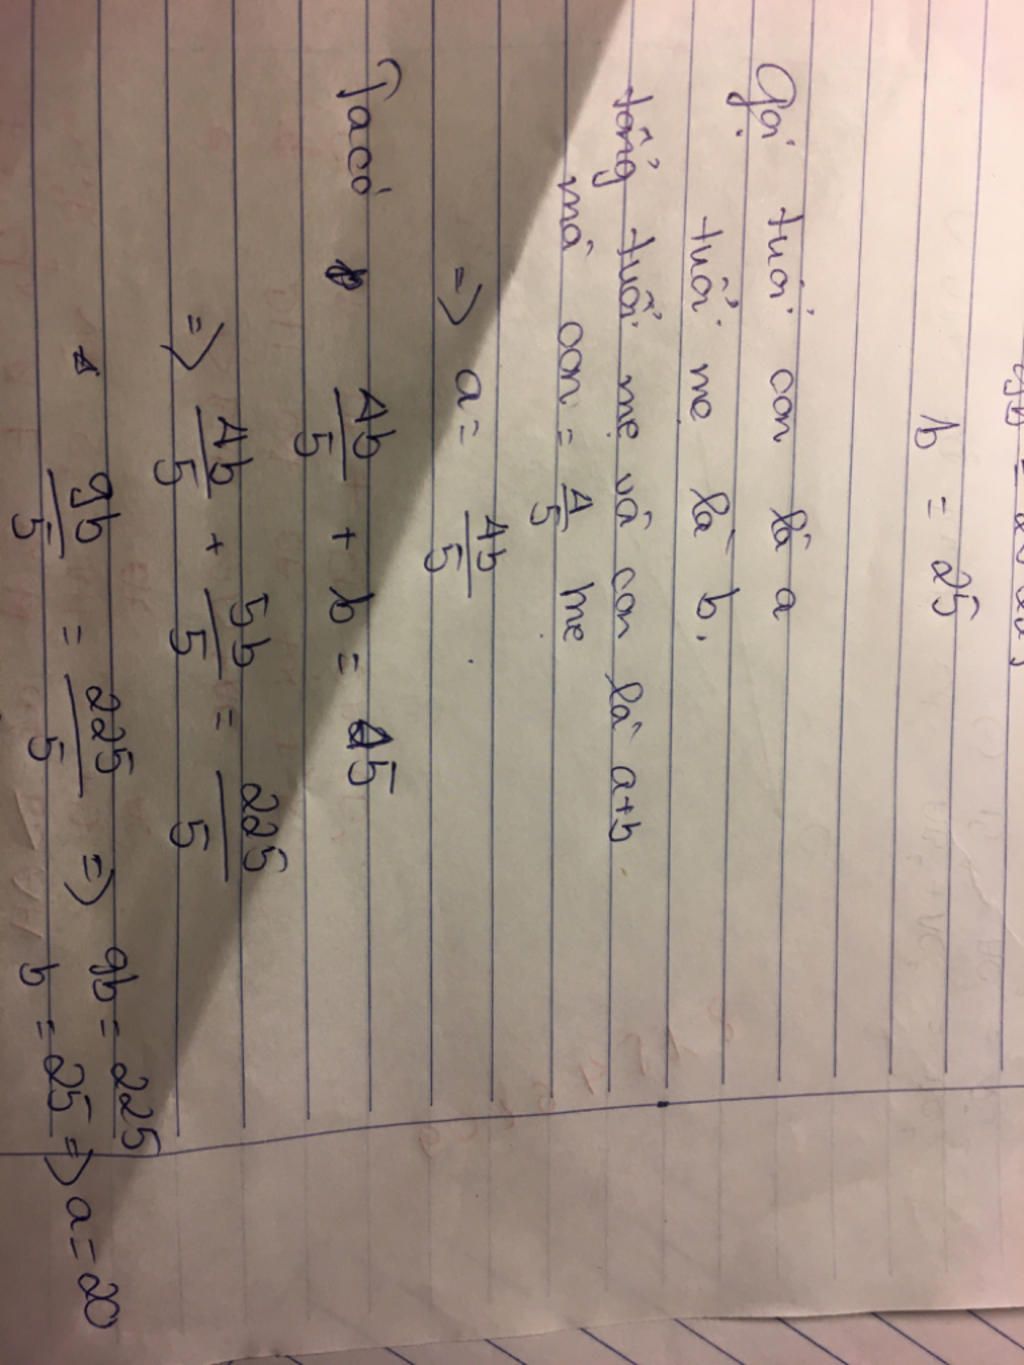 b = 25
Gọi tuổi con là a
tuổi mẹ là b,
tổng tuổi mẹ và con là a+b.
mà con = 4/5 mẹ
=> a = 4b/5
Ta có 4b/5 + b = 45
=> 4b/5 + 5b/5 = 225/5
9b/5 = 225/5 => 9b = 225
b = 25 => a = 20